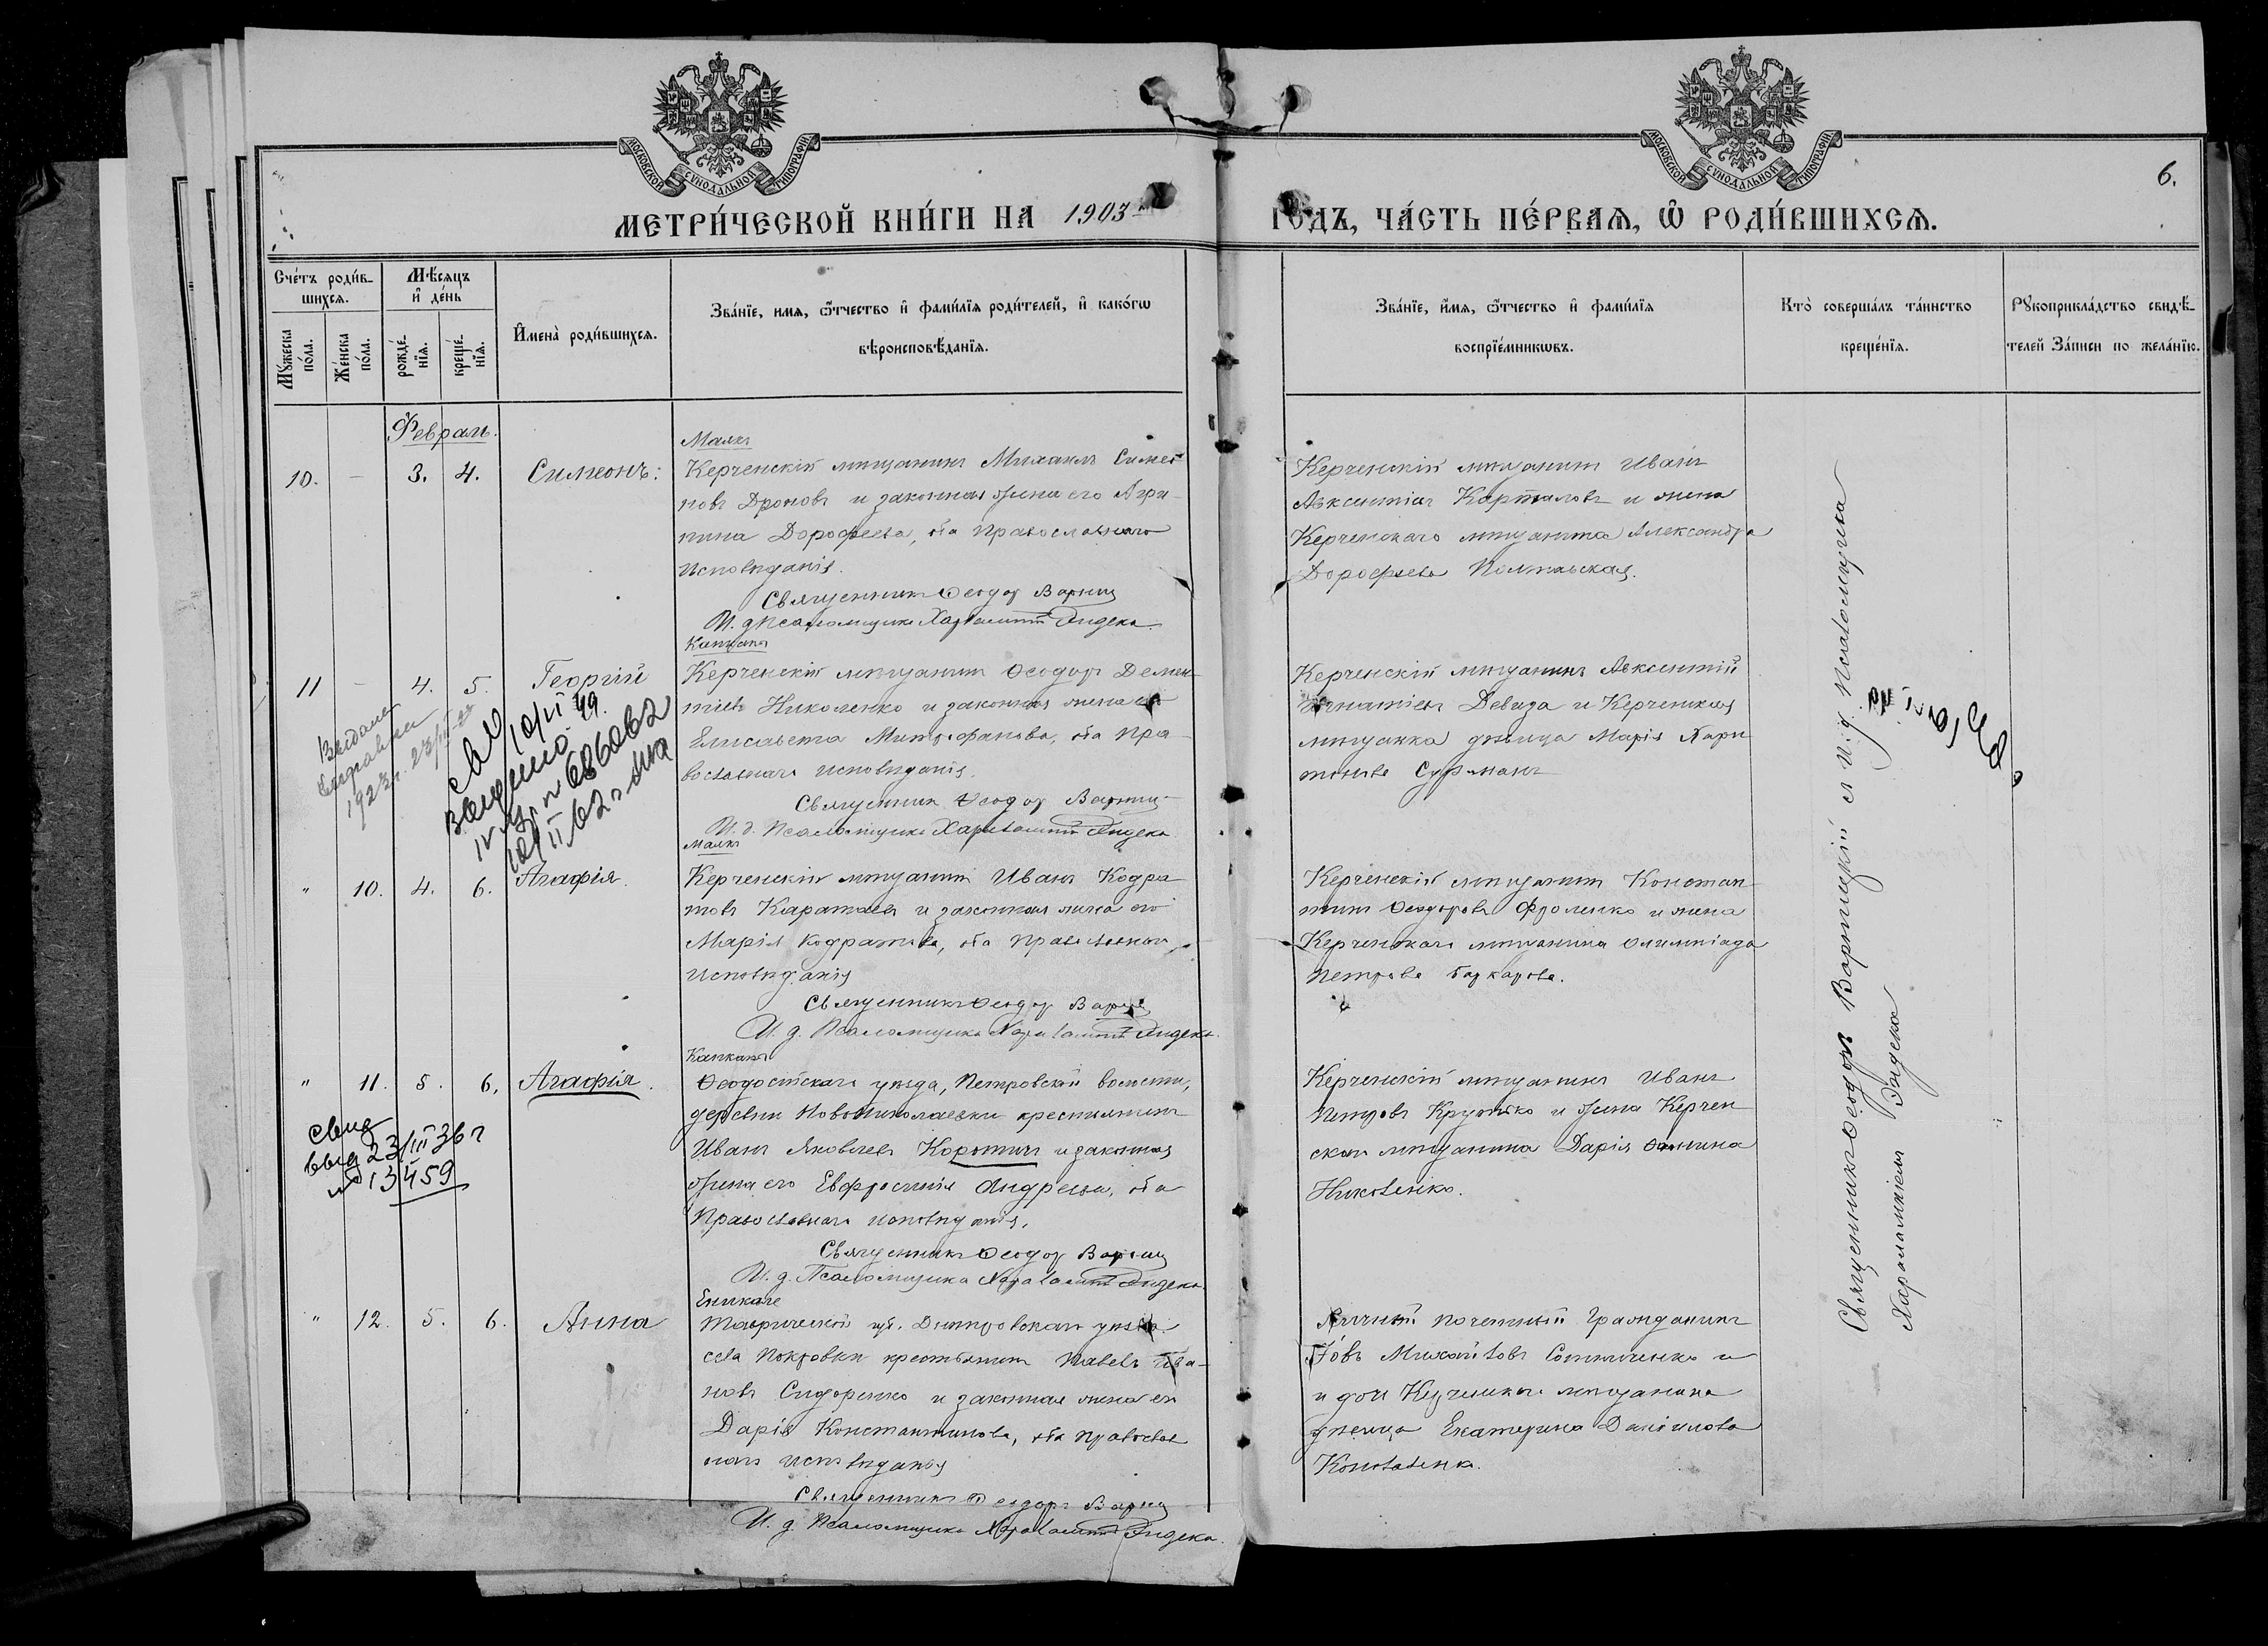 МОСКОВСКОЙ СУНОДАЛЬНОЙ ТИПОГРАФІИ
МОСКОВСКОЙ СУНОДАЛЬНОЙ ТИПОГРАФІИ
6.
МЕТРИ́ЧЕСКОЙ КНИ́ГИ НА 1903
ГОДЪ, ЧА́СТЬ ПЕ́РВАЯ, Ѿ РОДИ́ВШИХСЯ.
Сче́тъ роди́в-
шихся.
Мѣ́сяцъ
и де́нь
Мꙋ́жеска
по́ла.
Же́нска
по́ла.
рожде́-
нїя.
креще́-
нїя.
Имена̀ роди́вшихся.
Зва́нїе, имя, ѻ҆́тчество и҆ фами́лїя роди́телей, и҆ како́гѡ
вѣроисповѣ́данїя.
Зва́нїе, и҆́мя, ѻ҆́тчество и҆ фами́лїя
воспрїе́мникѡвъ.
Кто̀ соверша́лъ та́инство
креще́нїя.
Рꙋкоприкла́дство свидѣ́-
телей За́писи по жела́нїю.
Февраль.
Маякъ
10. — 3. 4. Симеонъ:
Керченскій мѣщанинъ Михаилъ Симео
новъ Дроновъ и законная жена его Агри-
пина Дорофеева, оба Православнаго
Исповѣданія.
Священникъ Ѳеодоръ Варниц
И. д. Псаломщика Харалампій Дидека.
Керченскій мѣщанинъ Иванъ
Авксентіевъ и жена
Керченскаго мѣщанина Александра
Дорофеева
Капканъ
11 — 4. 5. Георгій
Керченскій мѣщанинъ Ѳеодоръ Демен-
тіевъ Николенко и законная жена его
Елисавета Митрофанова, оба Пра-
вославнаго исповѣданія.
Священникъ Ѳеодоръ Варниц
И. д. Псаломщика Харалампій Дидека
Керченскій мѣщанинъ Авксентій
Игнатіевъ Девида и Керченская
мѣщанка дѣвица Марія Хари
тонова Сурманъ
Выдана
Справка
1923 г.
10/II 49.
Маякъ
" 10. 4. 6. Агафія.
Керченскій мѣщанинъ Иванъ Кодра
товъ Каратаевъ и законная жена его
Марія Кодратова, оба Православнаго
Исповѣданія
Священникъ Ѳеодоръ Варниц
И. д. Псаломщика Харалампій Дидека.
Керченскій мѣщанинъ Констан-
тинъ Ѳеодоровъ Фроленко и жена
Керченскаго мѣщанина Олимпіада
Петрова
Капканъ
" 11. 5. 6. Агафія.
Ѳеодосійскаго уѣзда, Петровской волости,
деревни Новониколаевки крестьянинъ
Иванъ Яковлевъ Коротичъ и законная
жена его Евфросинія Андреева, оба
Православнаго исповѣданія.
Священникъ Ѳеодоръ Варниц
И. д. Псаломщика Харалампій Дидека
Керченскій мѣщанинъ Иванъ
Петровъ Крутько и жена Керчен
скаго мѣщанина Дарія Ѳомина
Николенко.
свид
выд 23/III 36 г
№ 13459
Еникале
" 12. 5. 6. Анна
Таврической губ. Днепровскаго уѣзда
села Покровки крестьянинъ Павелъ Ива-
новъ Сидоренко и законная жена его
Дарія Константинова, оба Православ
наго исповѣданія
Священникъ Ѳеодоръ Варниц
И. д. Псаломщика Харалампій Дидека.
Личный почетный Гражданинъ
Іовъ Михайловъ Сотниченко и
и дочь Керченскаго мѣщанина
дѣвица Екатерина Даніилова
Коноваленко.
Священникъ Ѳеодоръ Варницкій и И. д. Псаломщика
Харалампій Дидека